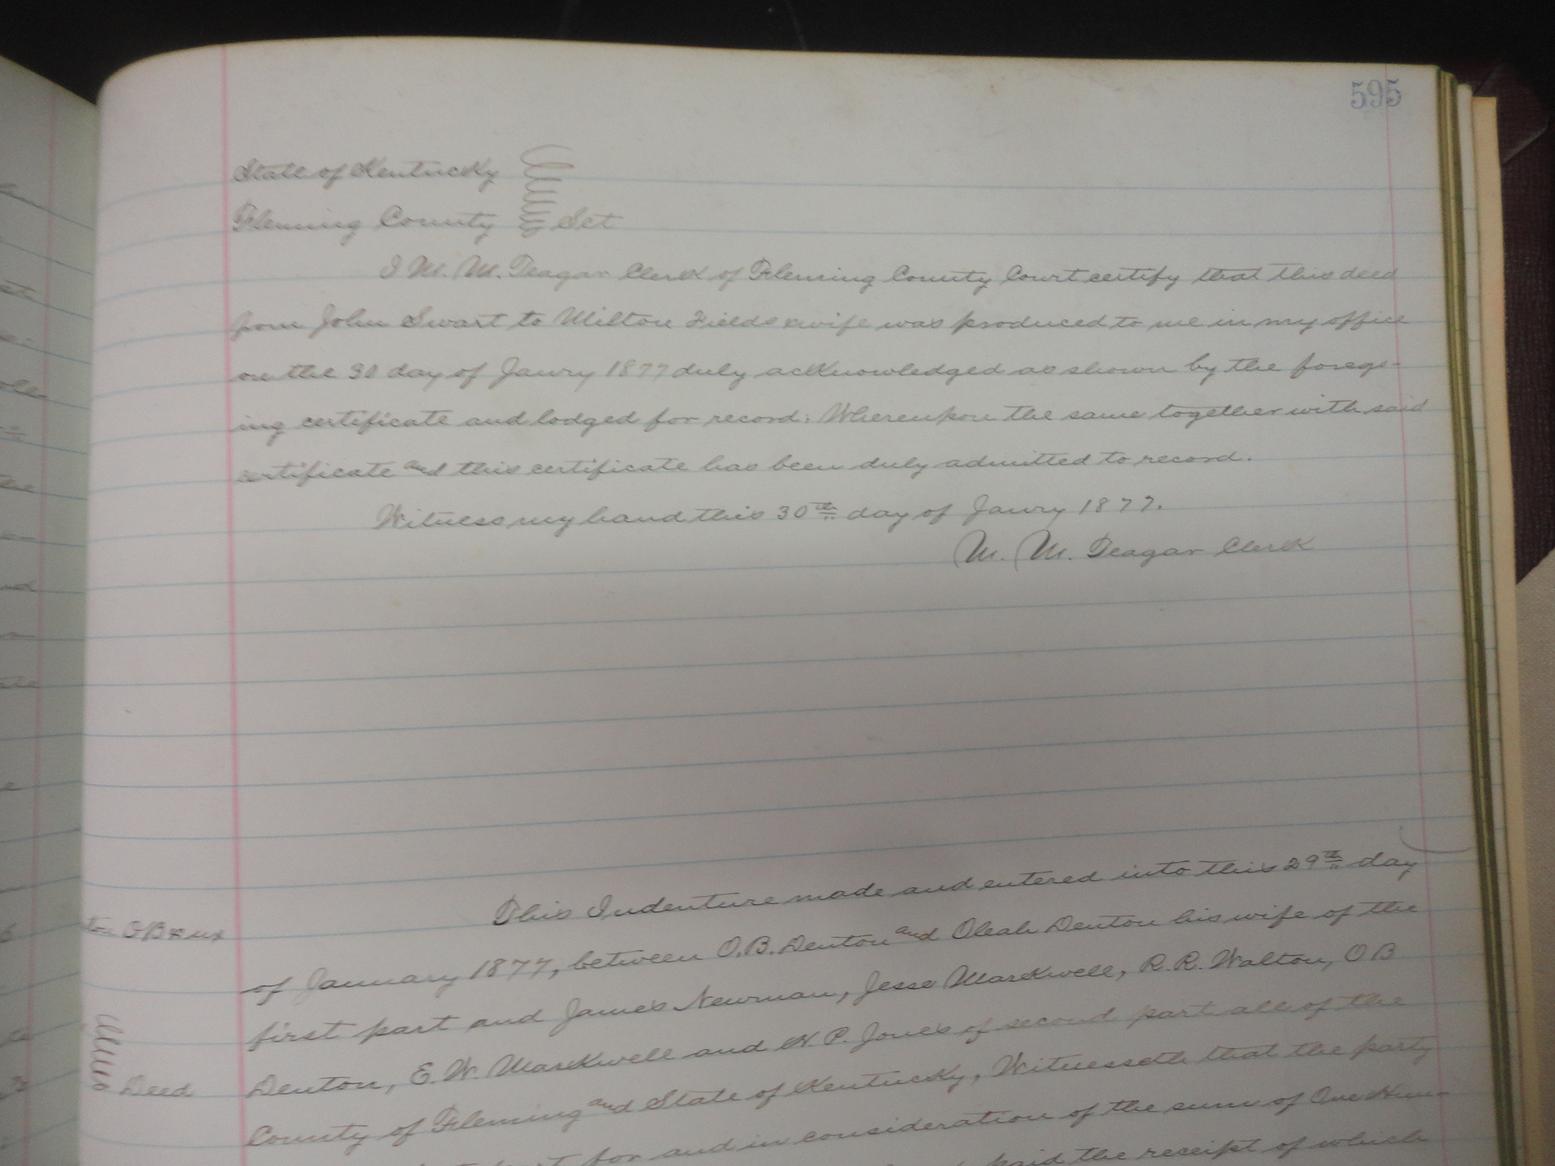 595
State of Kentucky
Fleming County Sct
I M. M. Teagar Clerk of Fleming County Court certify that this deed
from John Swart to Milton Fields & wife was produced to me in my office
on the 30 day of Janry 1877 duly acknowledged as shown by the forego-
ing certificate and lodged for record. Whereupon the same together with said
certificate and this certificate has been duly admitted to record.
Witness my hand this 30th day of Janry 1877.
M. M. Teagar Clerk
This Indenture made and entered into this 29th day
ton O B & ux
of January 1877, between O. B. Denton and Oleah Denton his wife of the
first part and James Newman, Jesse Markwell, R. R. Walton, O B
Denton, E. W. Markwell and N. P. Jones of second part all of the
Deed
County of Fleming and State of Kentucky, Witnesseth that the party
for and in consideration of the sum of One Hun-
paid the receipt of which